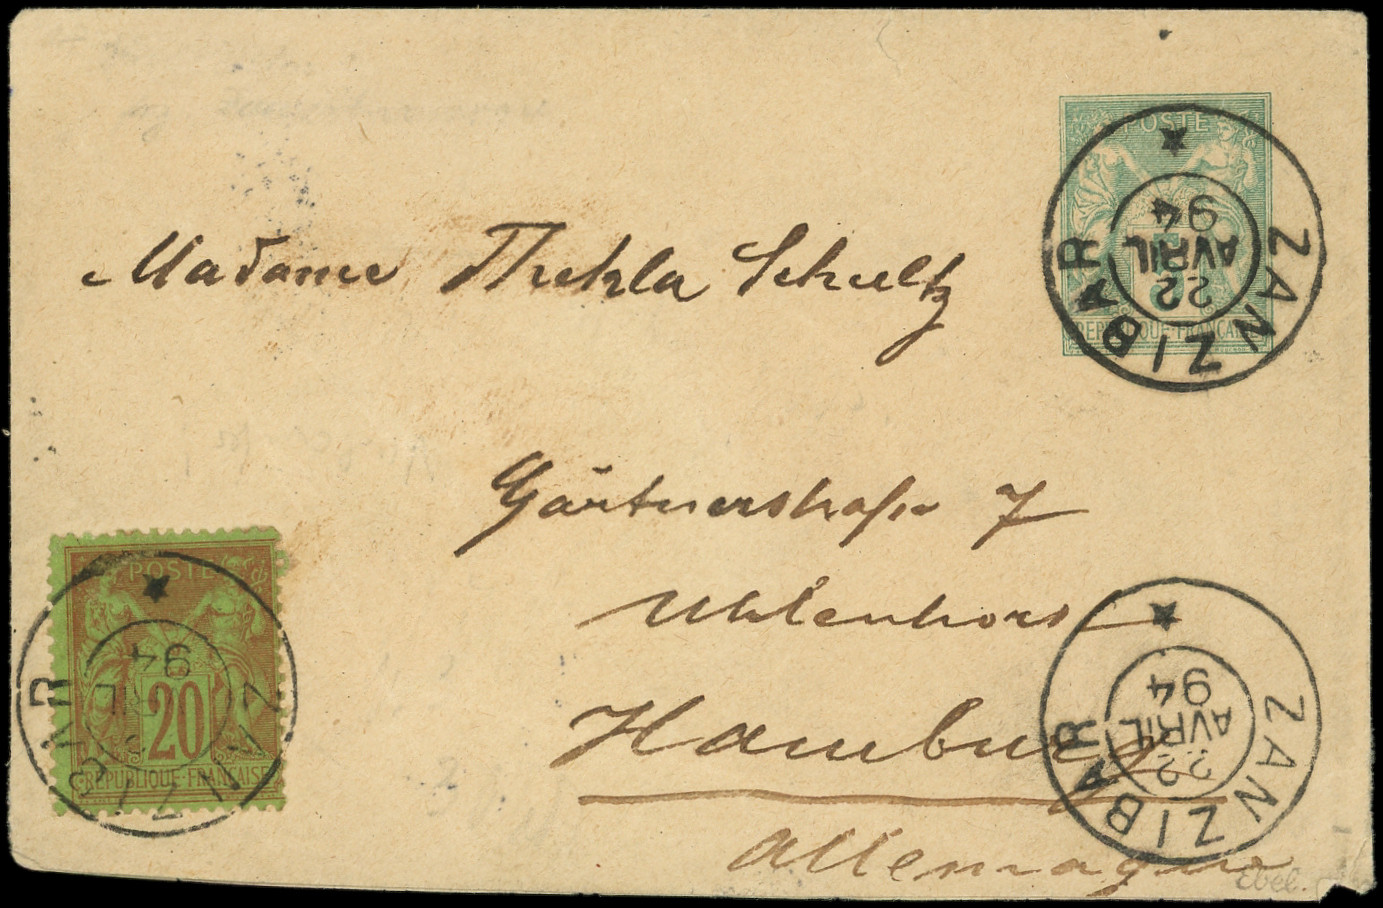 POSTE
RÉPUBLIQUE FRANÇAISE
ZANZIBAR
22
AVRIL
94
Madame Thekla Schultz
Gärtnerstraße 7
Uhlenhorst
Hamburg
Allemagne
POSTE
20
RÉPUBLIQUE FRANÇAISE
ZANZIBAR
RIL
94
ZANZIBAR
22
AVRIL
94